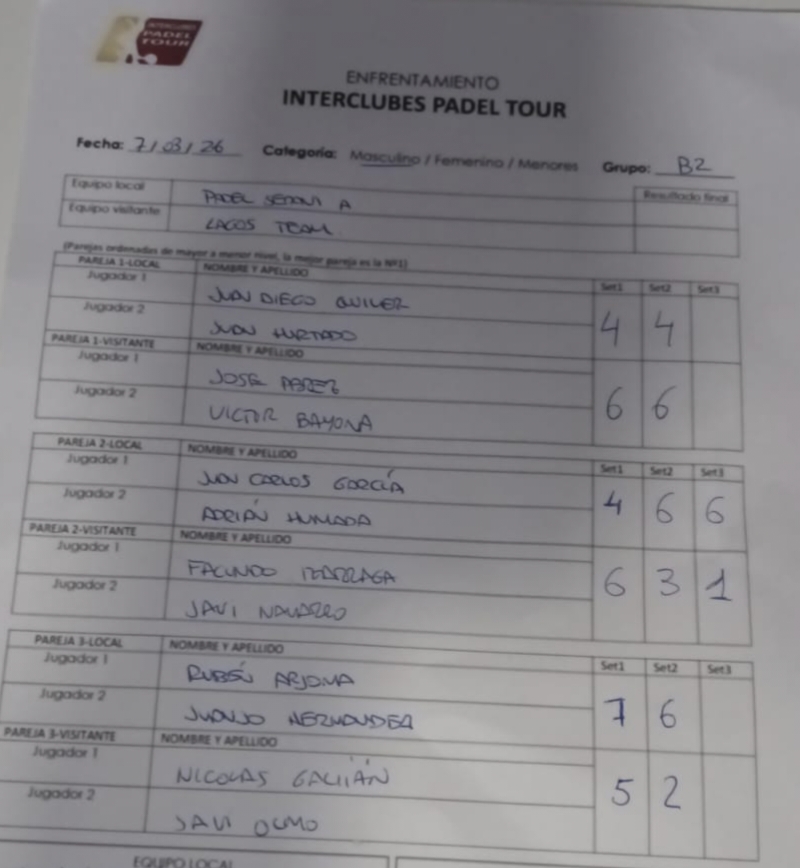 INTERCLUBES
PADEL
TOUR
ENFRENTAMIENTO
INTERCLUBES PADEL TOUR
Fecha: 7/03/26 Categoría: Masculino / Femenino / Menores Grupo: B2
Equipo local PADEL A Resultado final
Equipo visitante LAGOS TEAM
(Parejas ordenadas de mayor a menor nivel, la mejor pareja es la Nº1)
PAREJA 1-LOCAL NOMBRE Y APELLIDO Set1 Set2 Set3
Jugador 1 JUAN DIEGO
Jugador 2 JUAN HURTADO 4 4
PAREJA 1-VISITANTE NOMBRE Y APELLIDO
Jugador 1 JOSE PEREZ
Jugador 2 VICTOR BAYONA 6 6
PAREJA 2-LOCAL NOMBRE Y APELLIDO Set1 Set2 Set3
Jugador 1 JUAN CARLOS GARCÍA
Jugador 2 ADRIÁN HUMADA 4 6 6
PAREJA 2-VISITANTE NOMBRE Y APELLIDO
Jugador 1 FACUNDO 6 3 1
Jugador 2 JAVI NAVARRO
PAREJA 3-LOCAL NOMBRE Y APELLIDO Set1 Set2 Set3
Jugador 1 RUBÉN ARJONA
Jugador 2 JUANJO HERNANDEZ 7 6
PAREJA 3-VISITANTE NOMBRE Y APELLIDO
Jugador 1 NICOLAS GALIÁN 5 2
Jugador 2 JAVI OLMO
EQUIPO LOCAL